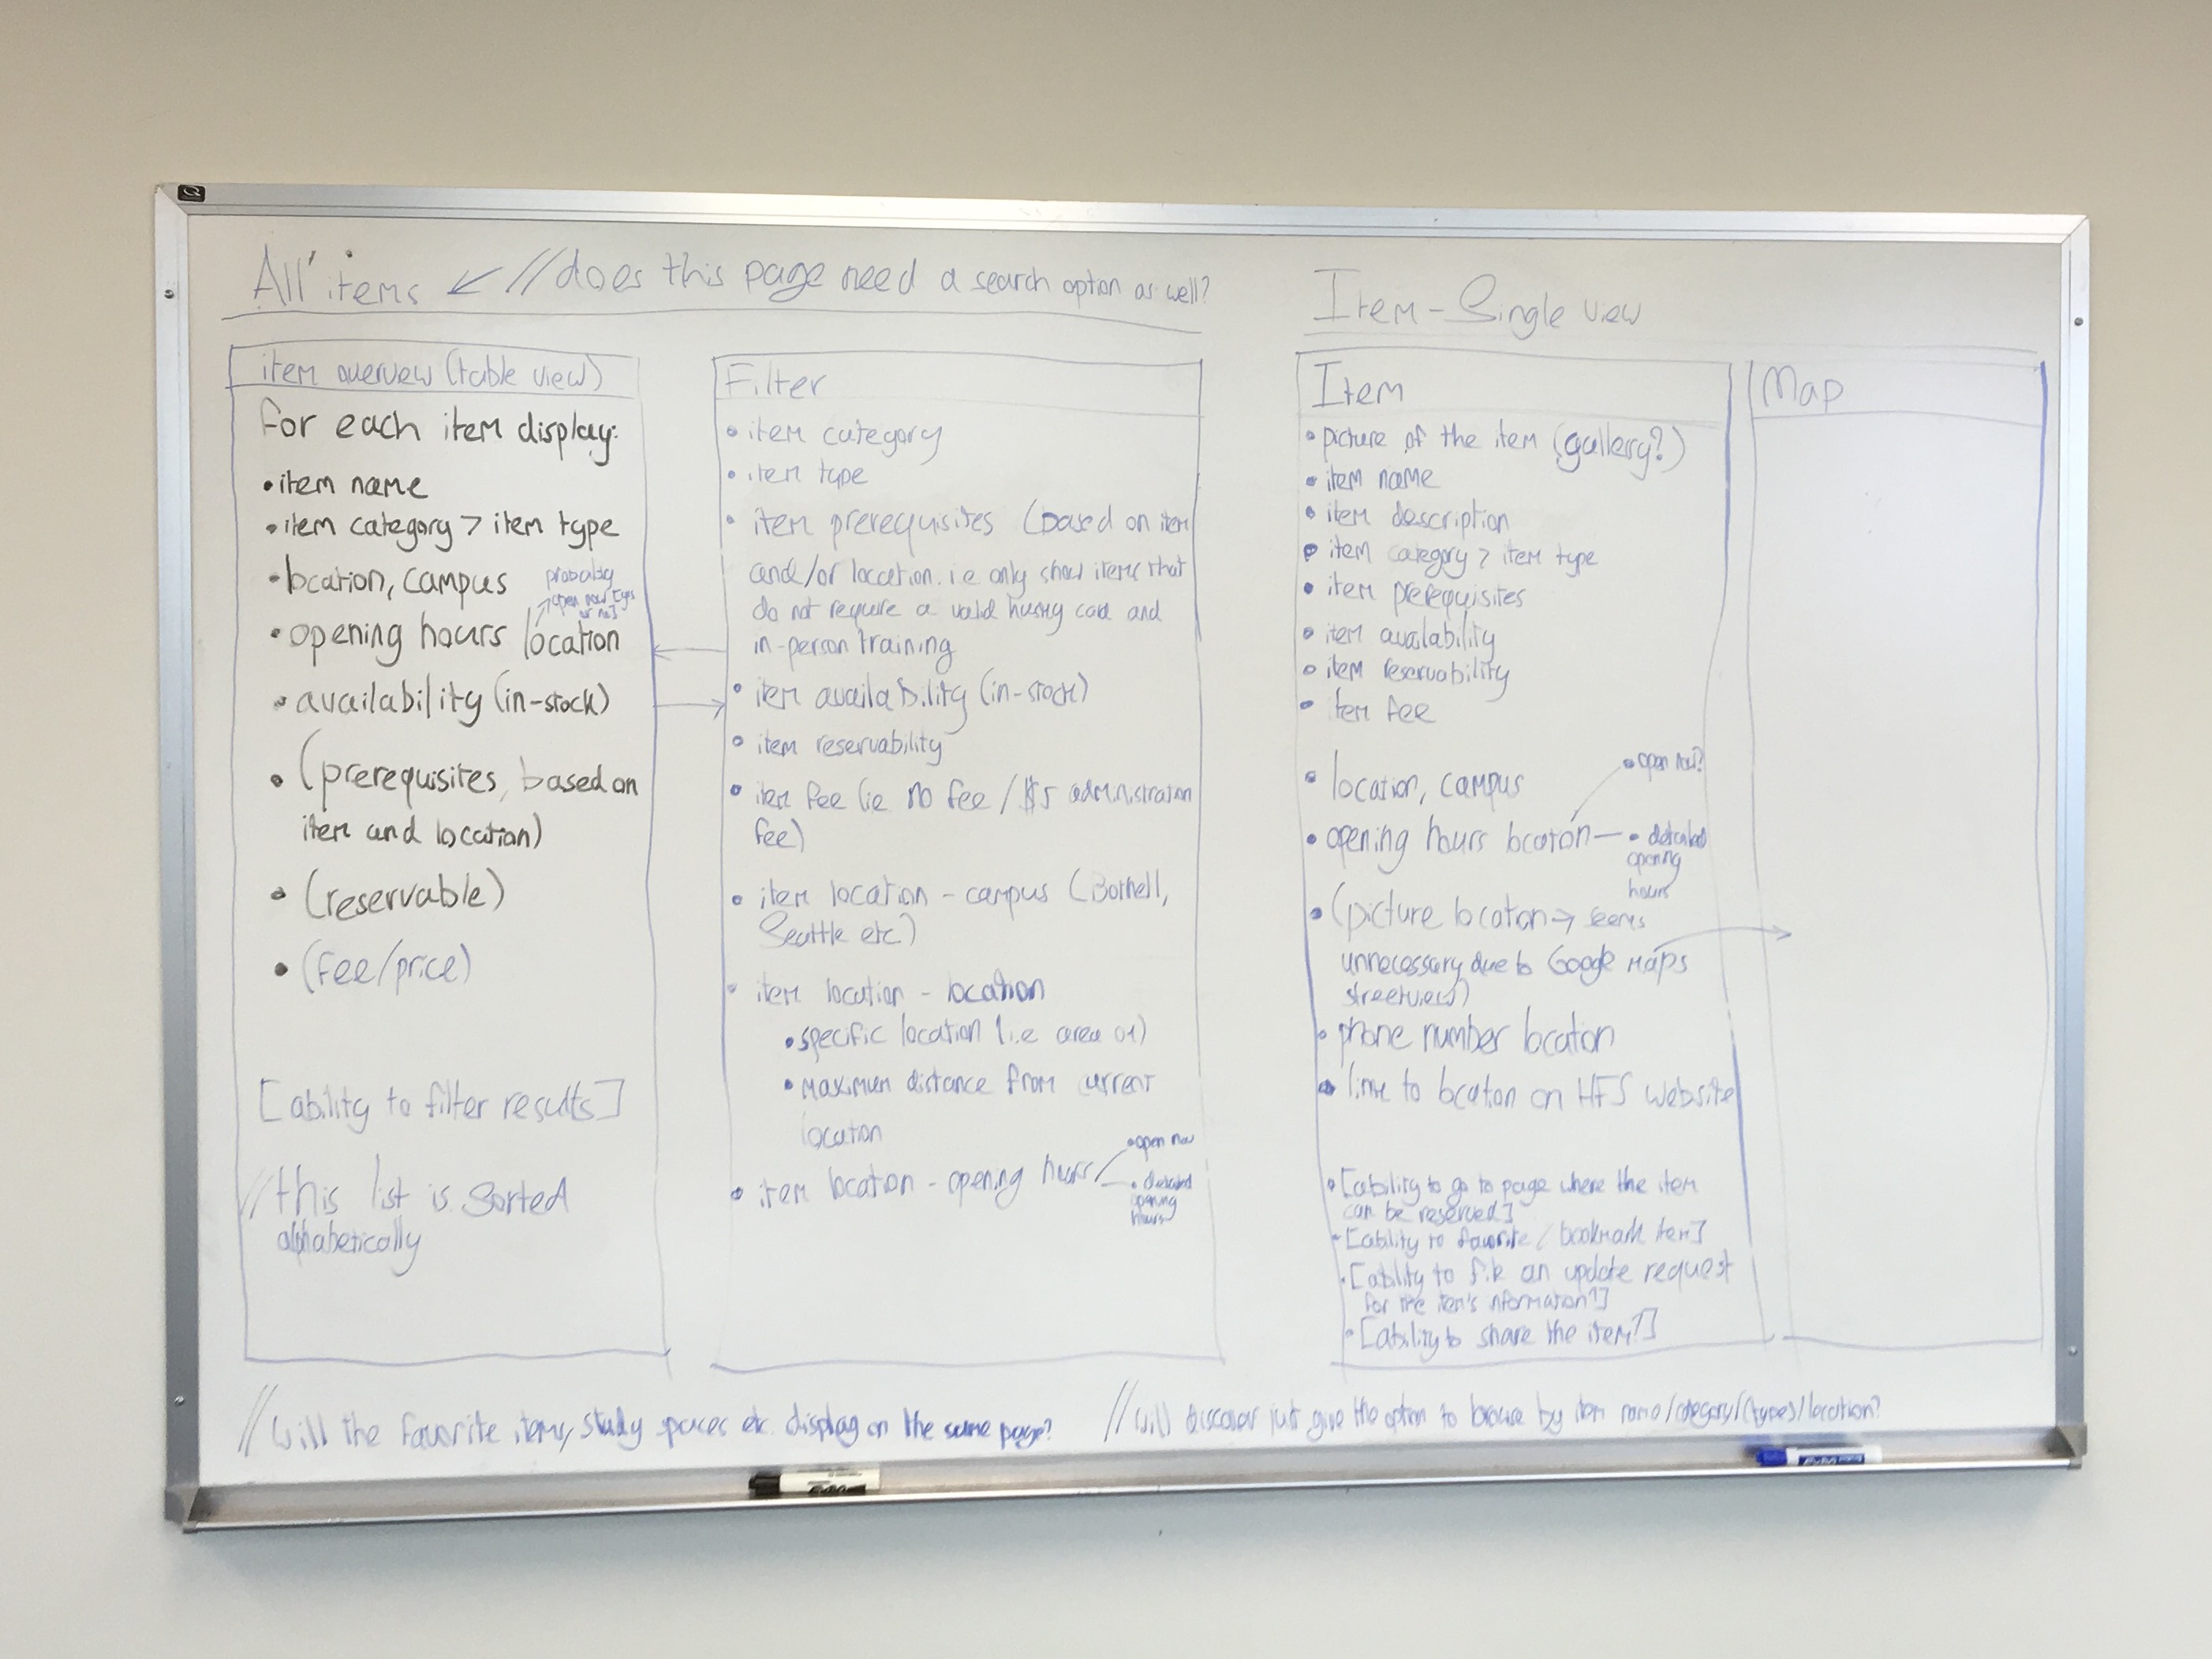 All items ↙ //does this page need a search option as well?
item overview (table view)
for each item display:
• item name
• item category > item type
• location, campus
probably
open now [yes
or no]
• opening hours location
• availability (in-stock)
• (prerequisites, based on
item and location)
• (reservable)
• (fee/price)
[ability to filter results]
// this list is sorted
alphabetically
Filter
• item category
• item type
• item prerequisites (based on item
and/or location. i.e only show items that
do not require a valid husky card and
in-person training
• item availability (in-stock)
• item reservability
• item fee (ie no fee / $5 administration
fee)
• item location - campus (Bothell,
Seattle etc)
• item location - location
• specific location (i.e area 01)
• maximum distance from current
location
• item location - opening hours
• open now
• detailed
opening
hours
Item - Single view
Item
• picture of the item (gallery?)
• item name
• item description
• item category > item type
• item prerequisites
• item availability
• item reservability
• item fee
• location, campus
• open now?
• opening hours location
• detailed
opening
hours
• (picture location → seems
unnecessary due to Google Maps
streetview)
• phone number location
• link to location on HFS website
• [ability to go to page where the item
can be reserved]
• [ability to favorite / bookmark item]
• [ability to file an update request
for the item's information?]
• [ability to share the item?]
Map
// Will the favorite items, study spaces etc. display on the same page?
// Will discover just give the option to browse by item name/category/(types)/location?